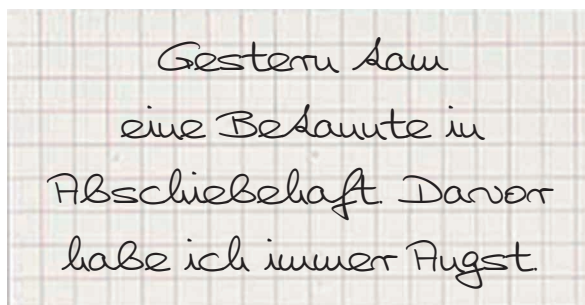 Gestern kam
eine Bekannte in
Abschiebehaft. Davor
habe ich immer Angst.